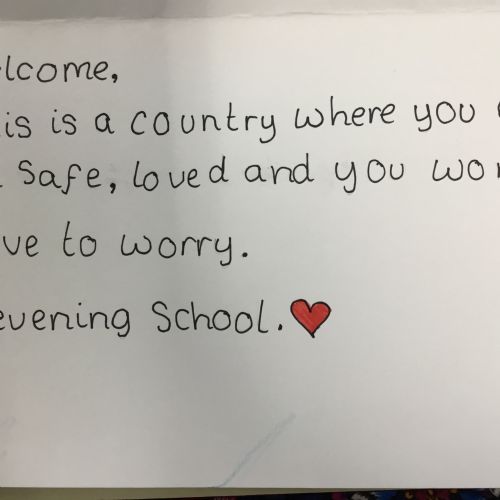 elcome,
is is a country where you
Safe, loved and you wo
ve to worry.
evening School.